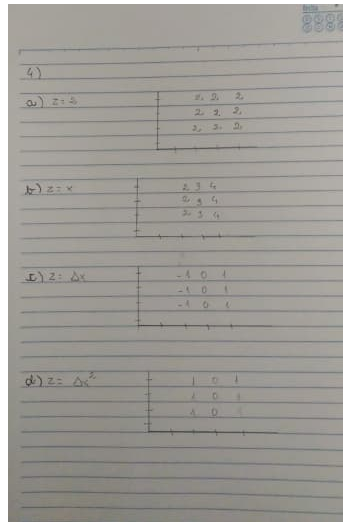 4)
a) z = 2
2 2 2
2 2 2
2 2 2
b) z = x
2 3 4
2 3 4
2 3 4
c) z = Δx
-1 0 1
-1 0 1
-1 0 1
d) z = Δx²
1 0 1
1 0 1
1 0 1